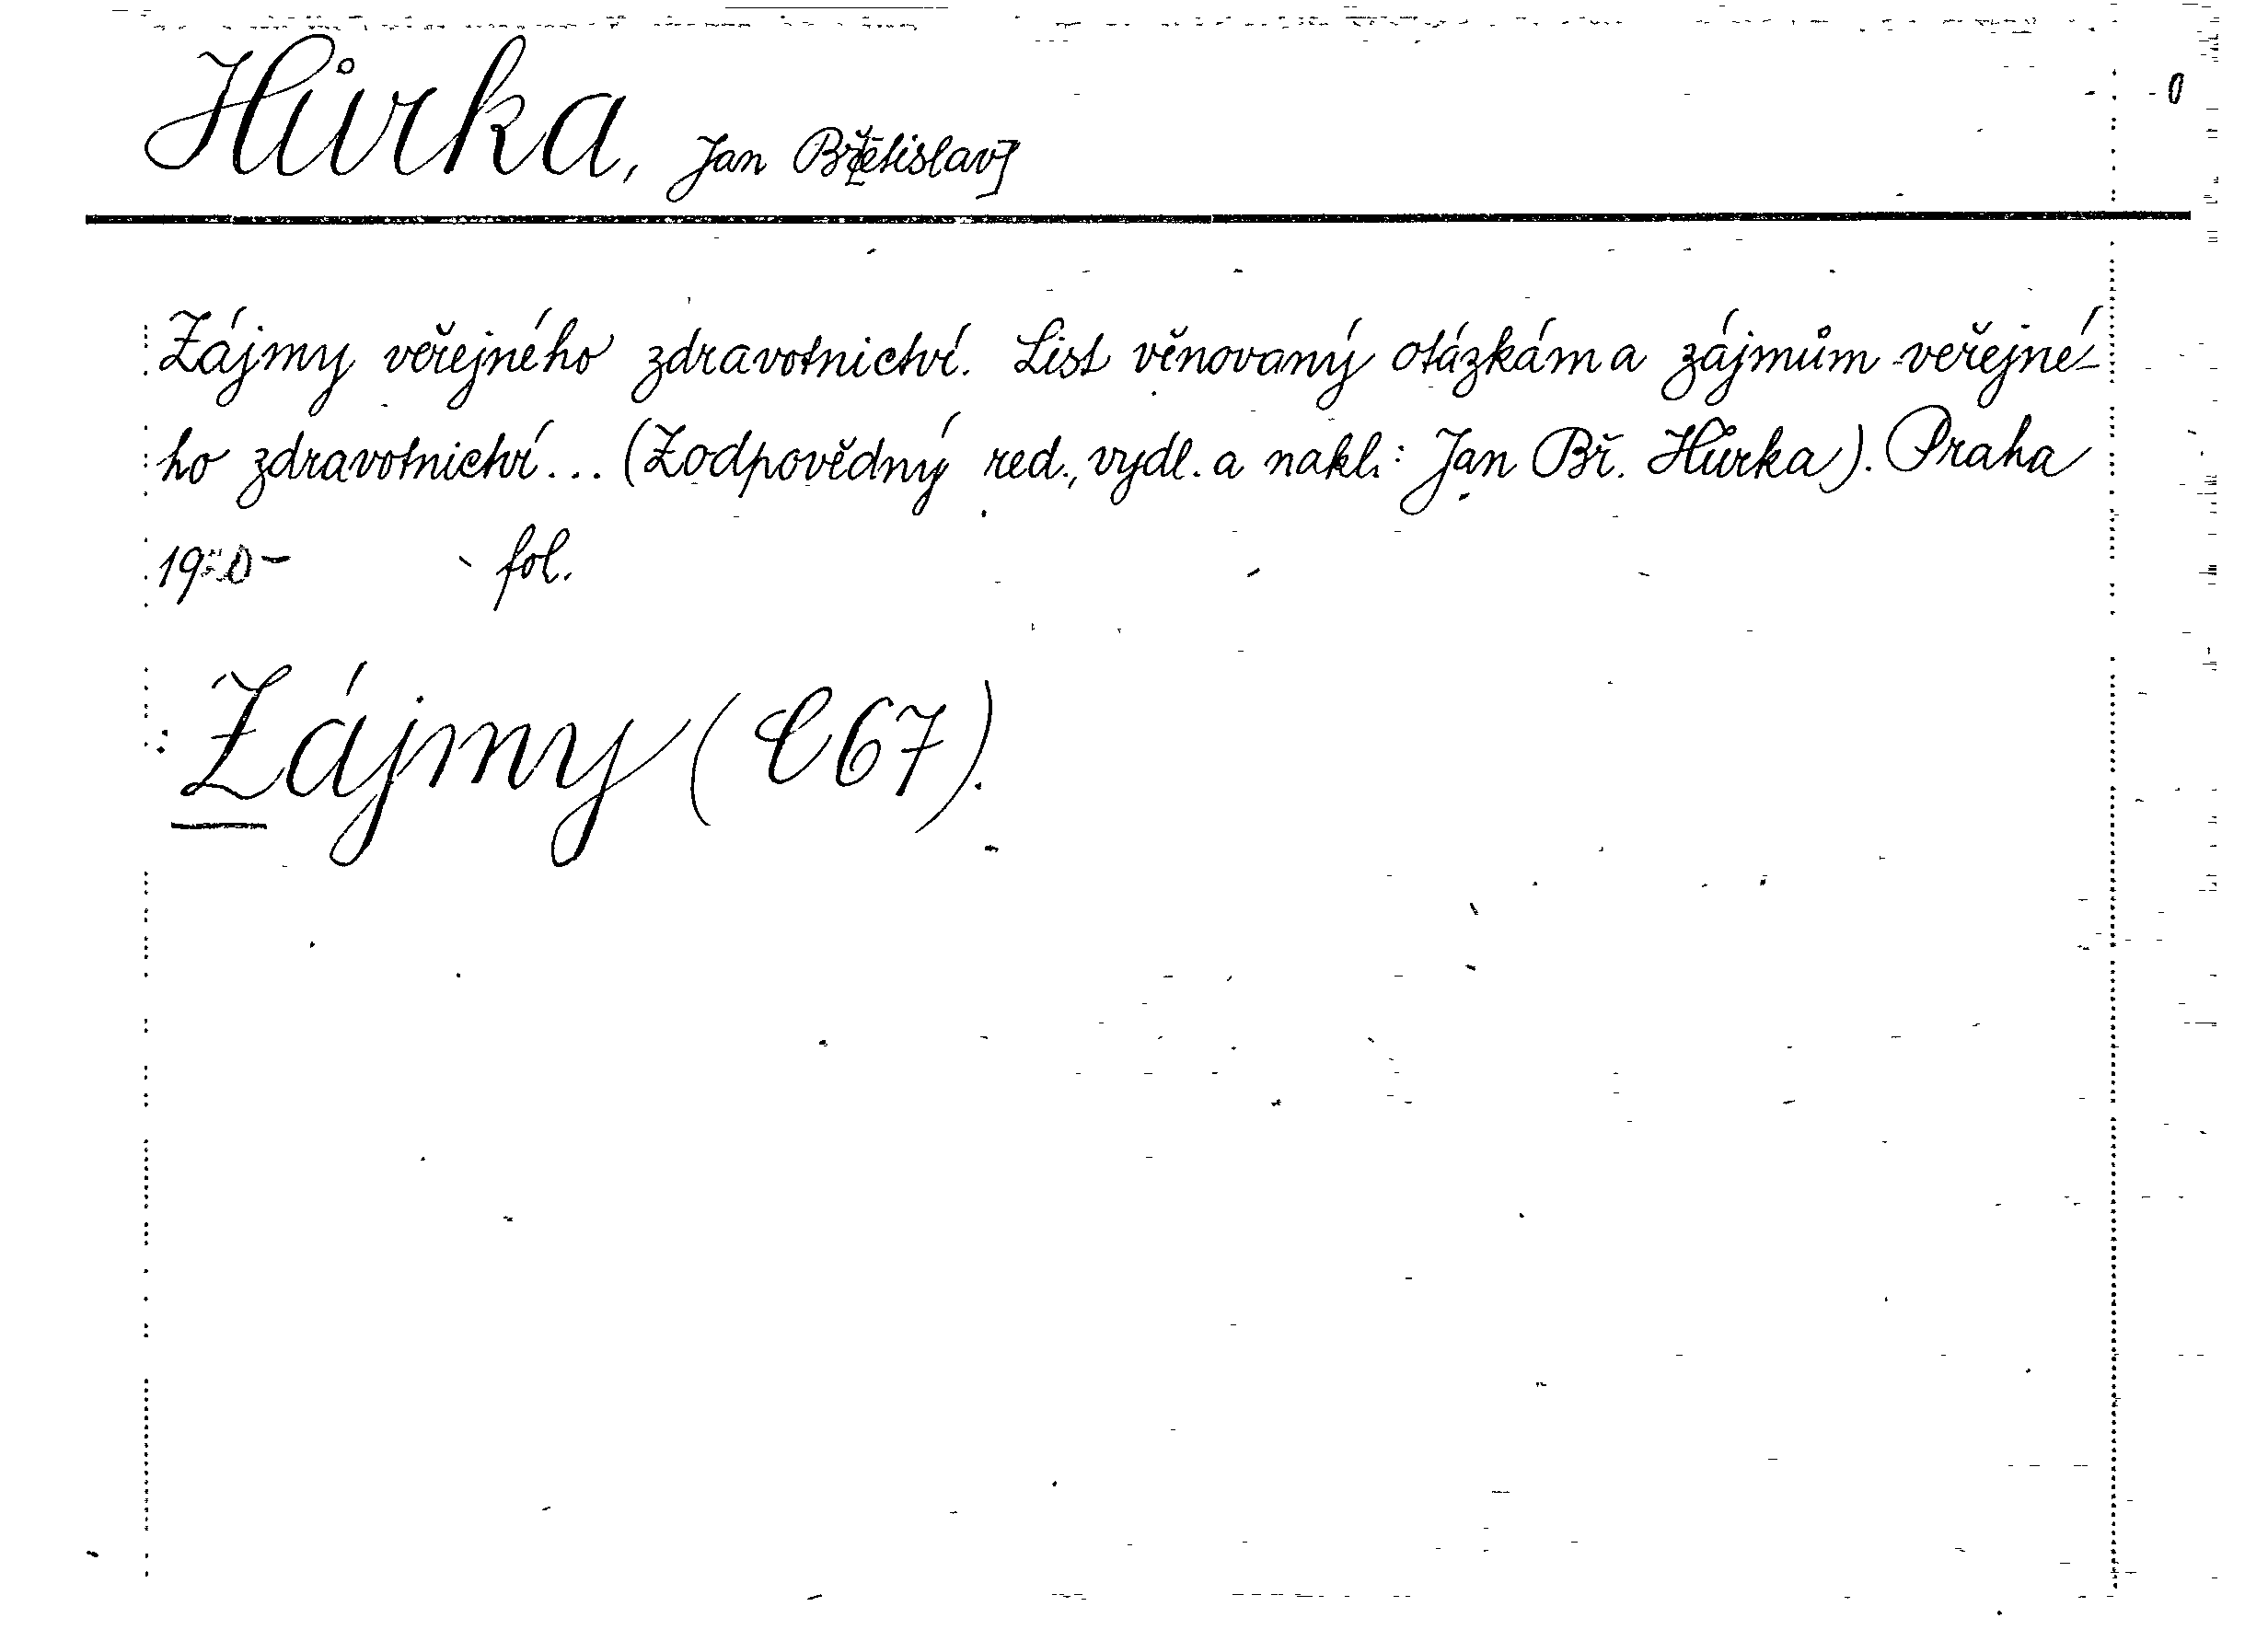 Hůrka, Jan Bř[etislav]
0
Zájmy veřejného zdravotnictví. List věnovaný otázkám a zájmům veřejné-
ho zdravotnictví... (Zodpovědný red., vydl. a nakl.: Jan Bř. Hůrka). Praha
fol.
Zájmy (C 67).